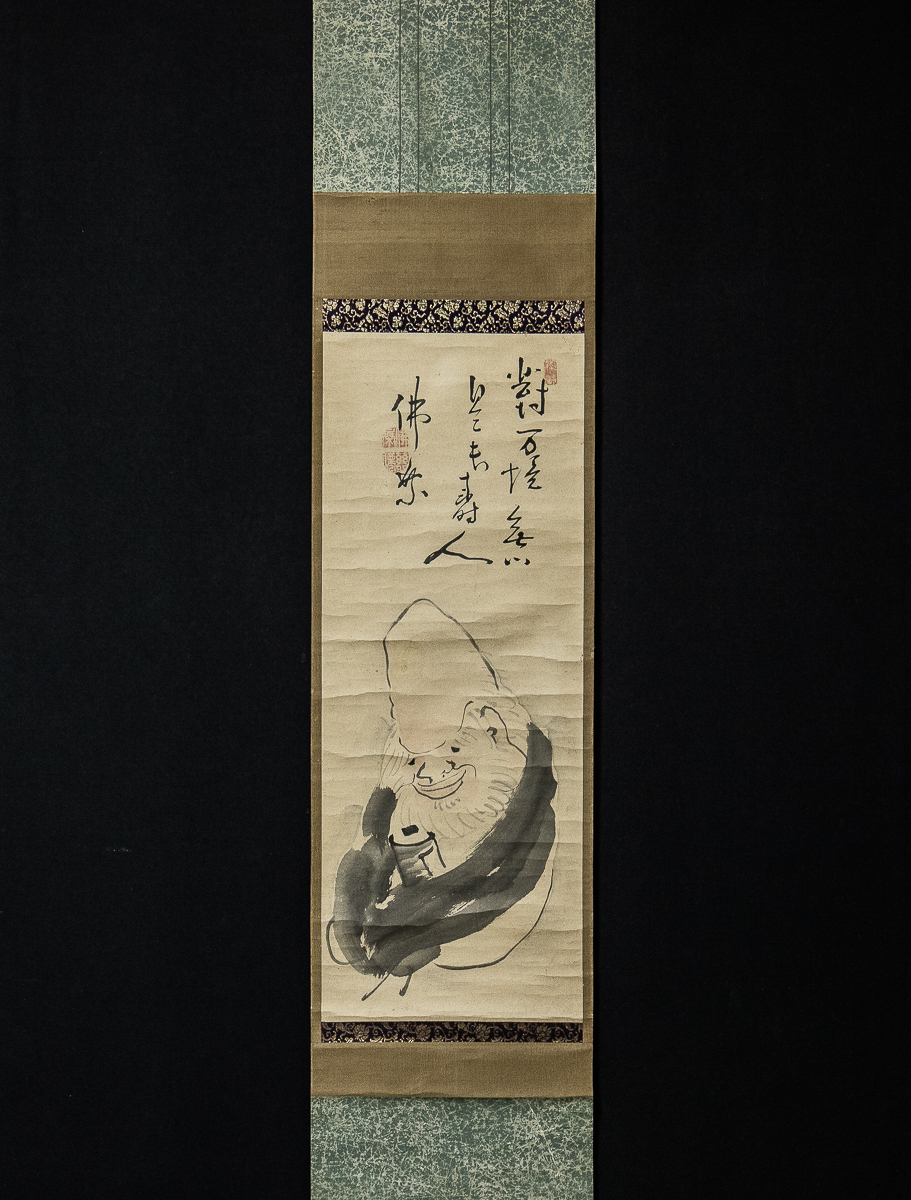 對万境無心
是長壽人
佛